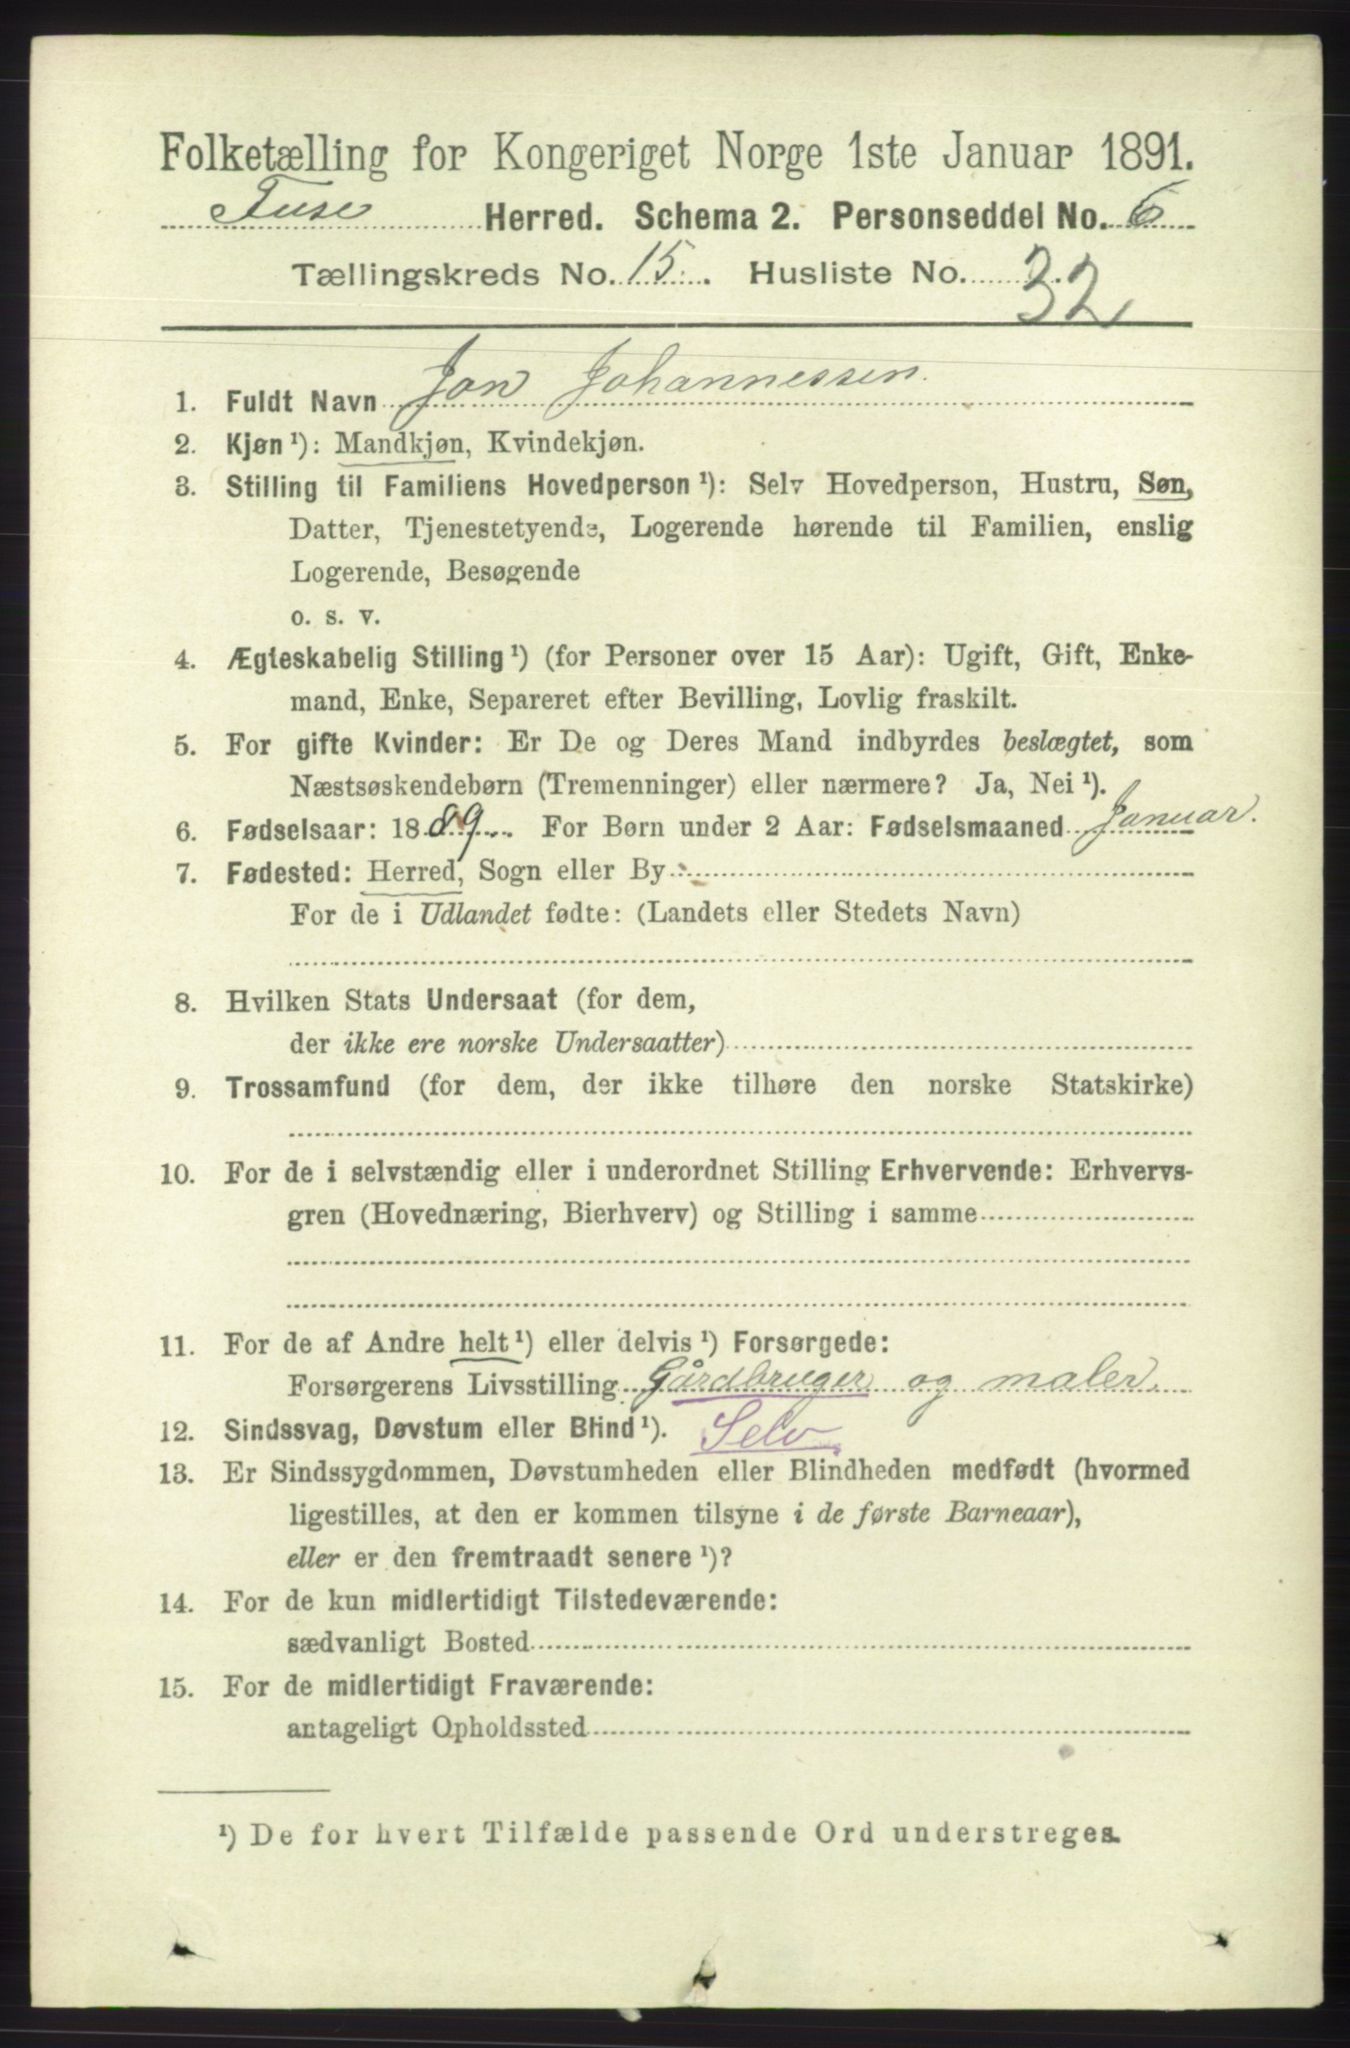 Folketælling for Kongeriget Norge 1ste Januar 1891.
Fuse Herred. Schema 2. Personseddel No. 6
Tællingskreds No. 15. Husliste No. 32
1. Fuldt Navn Jon Johannessen.
2. Kjøn ¹): Mandkjøn, Kvindekjøn.
3. Stilling til Familiens Hovedperson ¹): Selv Hovedperson, Hustru, Søn,
Datter, Tjenestetyende, Logerende hørende til Familien, enslig
Logerende, Besøgende
o. s. v.
4. Ægteskabelig Stilling ¹) (for Personer over 15 Aar): Ugift, Gift, Enke-
mand, Enke, Separeret efter Bevilling, Lovlig fraskilt.
5. For gifte Kvinder: Er De og Deres Mand indbyrdes beslægtet, som
Næstsøskendebørn (Tremenninger) eller nærmere? Ja, Nei ¹).
6. Fødselsaar: 1889. For Børn under 2 Aar: Fødselsmaaned Januar.
7. Fødested: Herred, Sogn eller By
For de i Udlandet fødte: (Landets eller Stedets Navn)
8. Hvilken Stats Undersaat (for dem,
der ikke ere norske Undersaatter)
9. Trossamfund (for dem, der ikke tilhøre den norske Statskirke)
10. For de i selvstændig eller i underordnet Stilling Erhvervende: Erhvervs-
gren (Hovednæring, Bierhverv) og Stilling i samme
11. For de af Andre helt ¹) eller delvis ¹) Forsørgede:
Forsørgerens Livsstilling Gårdbruger og maler.
12. Sindssvag, Døvstum eller Blind ¹). Selv
13. Er Sindssygdommen, Døvstumheden eller Blindheden medfødt (hvormed
ligestilles, at den er kommen tilsyne i de første Barneaar),
eller er den fremtraadt senere ¹)?
14. For de kun midlertidigt Tilstedeværende:
sædvanligt Bosted
15. For de midlertidigt Fraværende:
antageligt Opholdssted
¹) De for hvert Tilfælde passende Ord understreges.